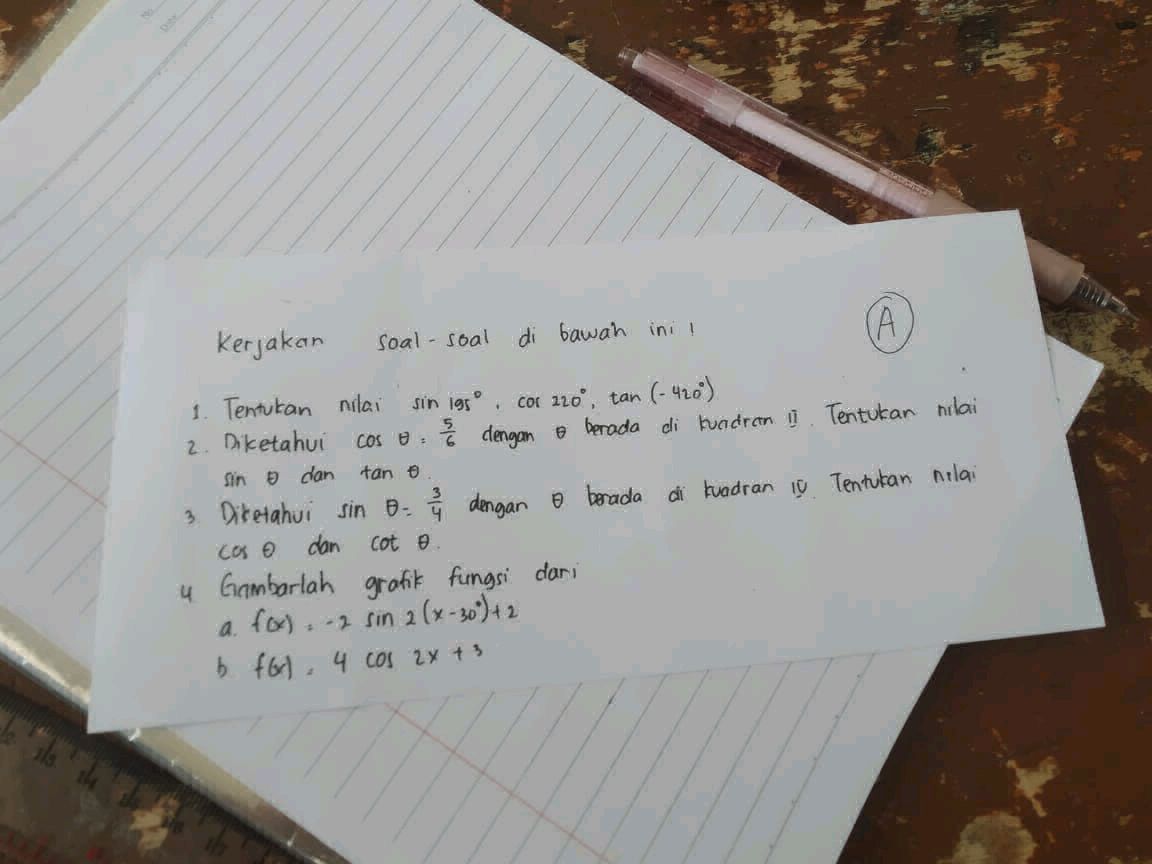 No
Date
A
Kerjakan soal-soal di bawah ini !
1. Tentukan nilai sin 195°, cos 220°, tan (-420°)
2. Diketahui cos θ = 5/6 dengan θ berada di kuadran II. Tentukan nilai
sin θ dan tan θ.
3. Diketahui sin θ = 3/4 dengan θ berada di kuadran IV. Tentukan nilai
cos θ dan cot θ.
4 Gambarlah grafik fungsi dari
a. f(x) = -2 sin 2(x-30°)+2
b. f(x) = 4 cos 2x + 3